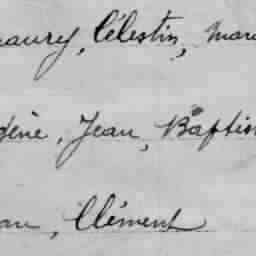 aury, Célestin, Mar
dène, Jean, Baptis
an, Clément